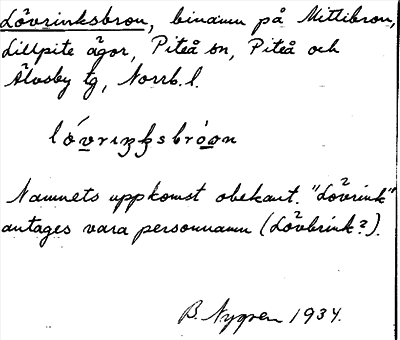 Lövrinksbron, binamn på Mittibron,
Lillpite ägor, Piteå sn, Piteå och
Älvsby tg, Norrb. l.
lóvrıŋks bróon
Namnets uppkomst obekant. "Lövrink"
antages vara personnamn (Lövbrink?).
B. Nygren 1934.